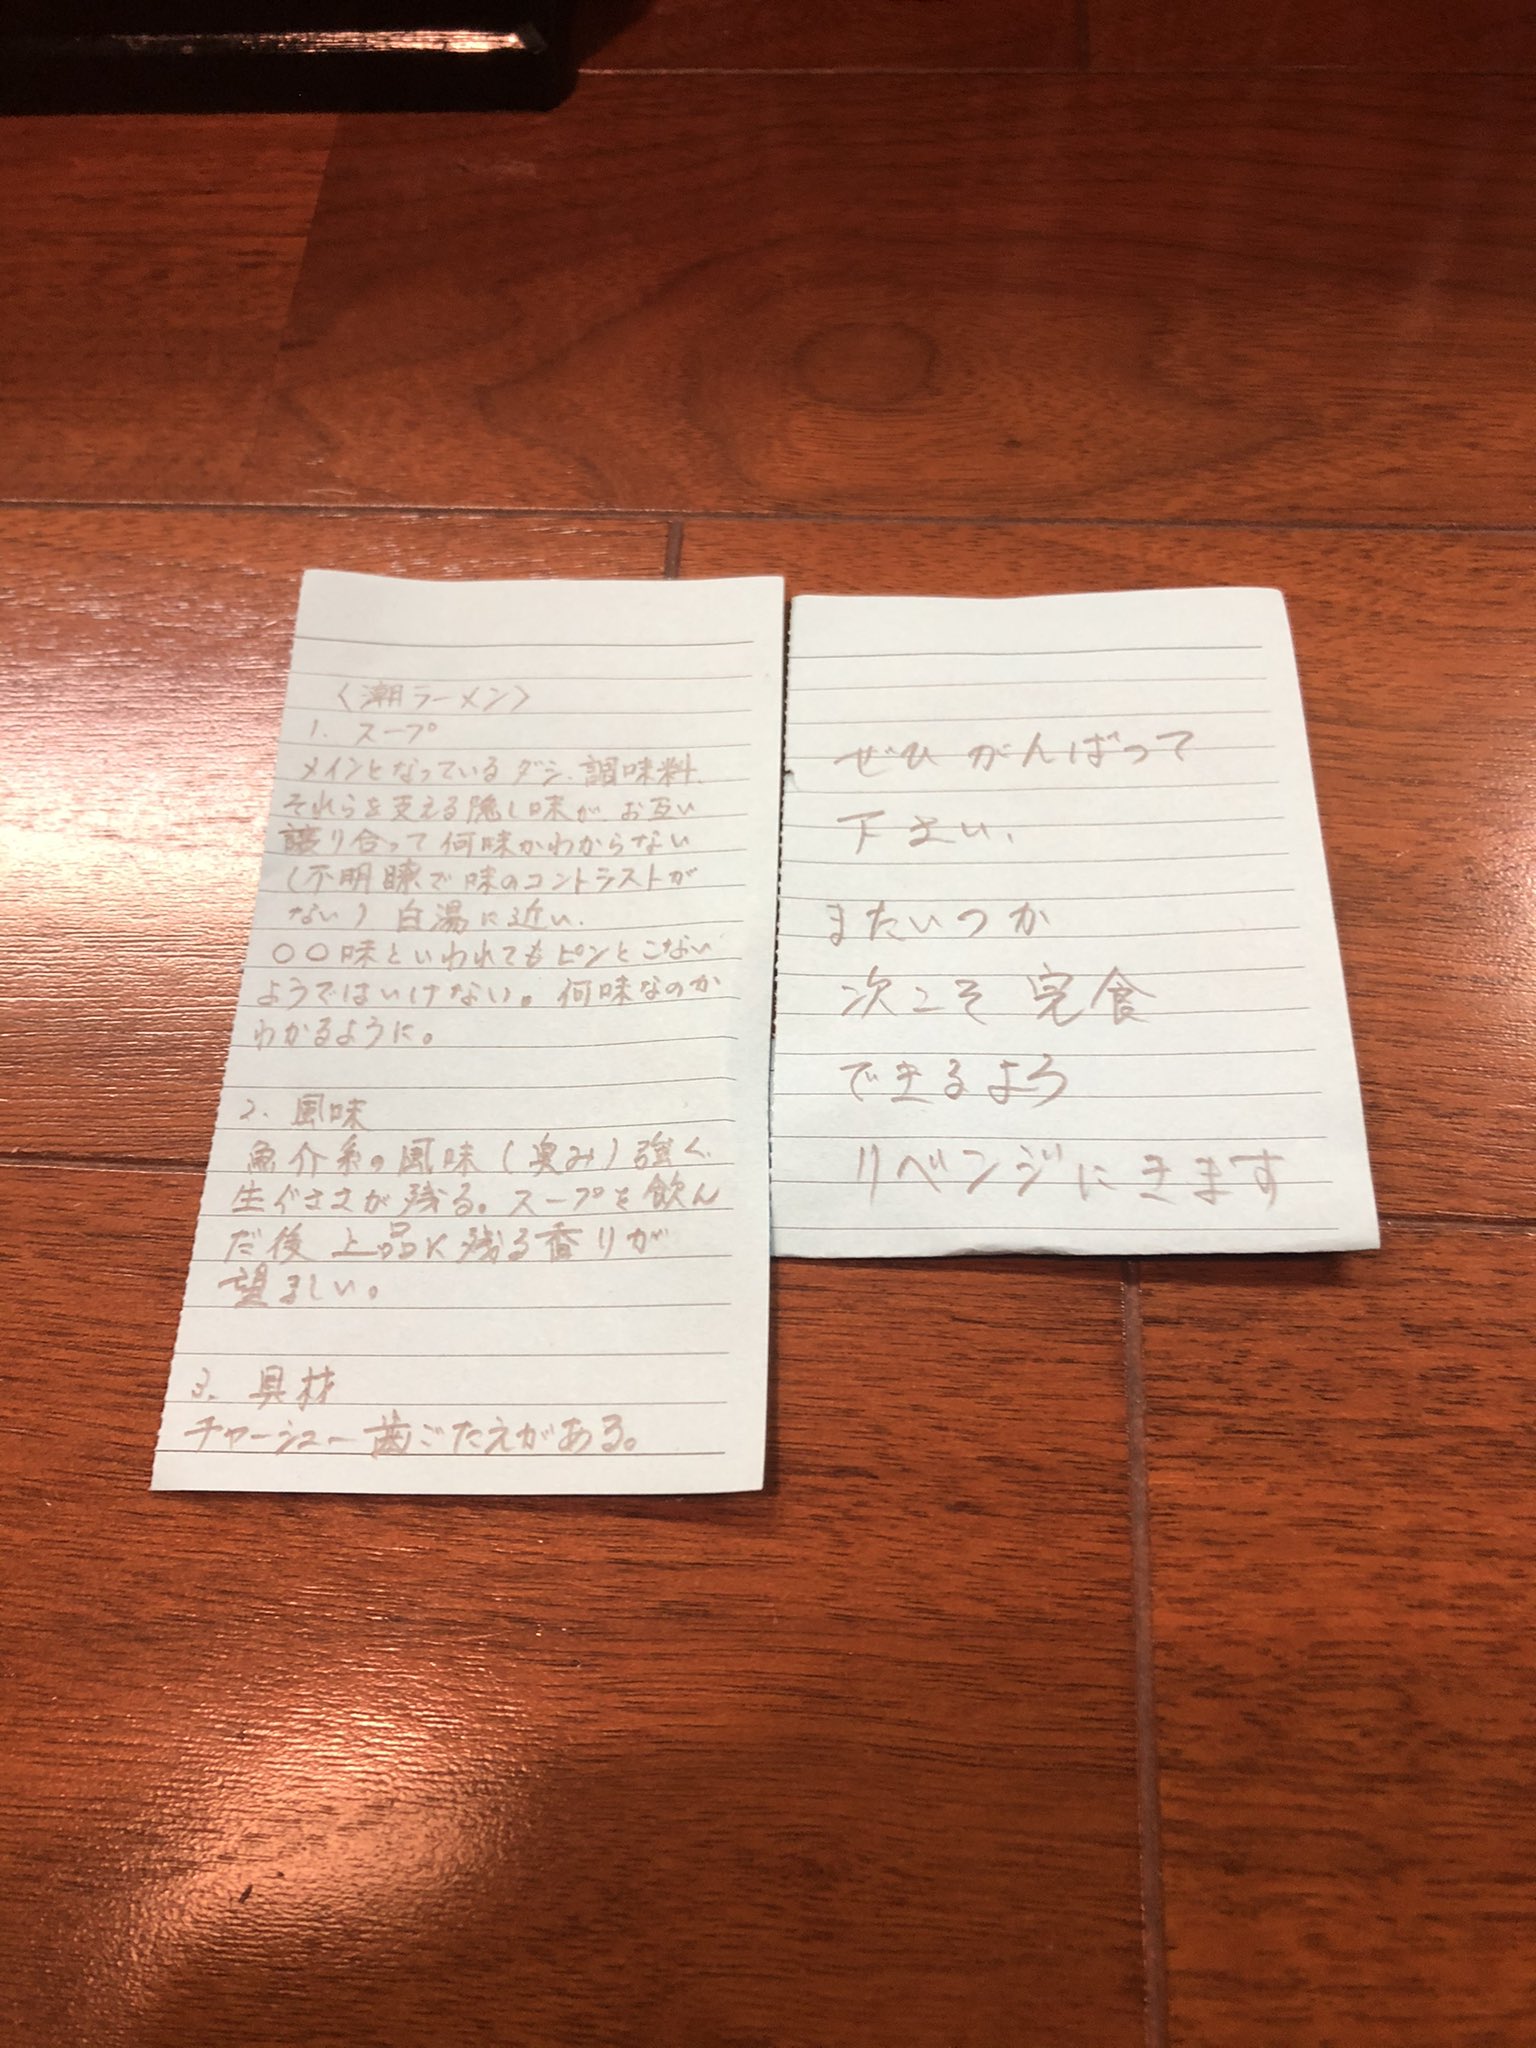 〈潮ラーメン〉
1. スープ
メインとなっているダシ、調味料、
それらを支える隠し味が、お互い
譲り合って何味かわからない
(不明瞭で味のコントラストが
ない) 白湯に近い、
〇〇味といわれてもピンとこない
ようではいけない。何味なのか
わかるように。
2. 風味
魚介系の風味(臭み)強く、
生ぐささが残る。スープを飲ん
だ後上品に残る香りが
望ましい。
3. 具材
チャーシュー歯ごたえがある。
ぜひがんばって
下さい、
またいつか
次こそ完食
できるよう
リベンジにきます